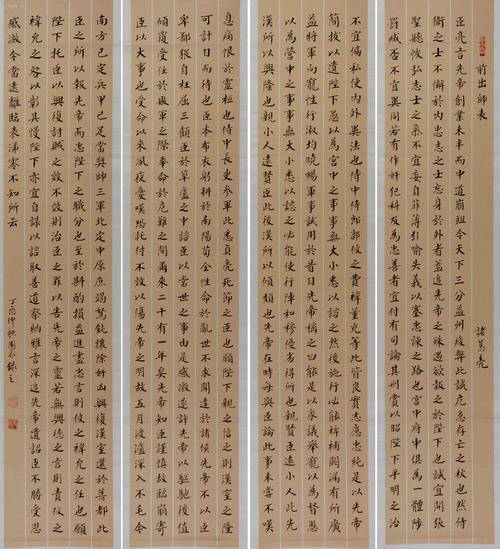 前出師表 諸葛亮
臣亮言先帝創業未半而中道崩殂今天下三分益州疲弊此誠危急存亡之秋也然侍
衛之士不懈於內忠志之士忘身於外者蓋追先帝之殊遇欲報之於陛下也誠宜開張
聖聽恢弘志士之氣不宜妄自菲薄引喻失義以塞忠諫之路也宮中府中俱為一體陟
罰臧否不宜異同若有作奸犯科及為忠善者宜付有司論其刑賞以昭陛下平明之治
不宜偏私使內外異法也侍中侍郎郭攸之費禕董允等此皆良實志慮忠純是以先帝
簡拔以遺陛下愚以為宮中之事事無大小悉以諮之然後施行必能裨補闕漏有所廣
益將軍向寵性行淑均曉暢軍事試用於昔日先帝稱之曰能是以眾議舉寵以為督愚
以為營中之事事無大小悉以諮之必能使行陣和穆優劣得所也親賢臣遠小人此先
漢所以興隆也親小人遠賢臣此後漢所以傾頹也先帝在時每與臣論此事未嘗不嘆
息痛恨於靈桓也侍中長史參軍此悉貞亮死節之臣也願陛下親之信之則漢室之隆
可計日而待也臣本布衣躬耕於南陽苟全性命於亂世不求聞達於諸侯先帝不以臣
卑鄙猥自枉屈三顧臣於草廬之中諮臣以當世之事由是感激遂許先帝以驅馳後值
傾覆受任於敗軍之際奉命於危難之間爾來二十有一年矣先帝知臣謹慎故臨崩寄
臣以大事也受命以來夙夜憂嘆恐托付不效以傷先帝之明故五月渡瀘深入不毛今
南方已定兵甲已足當獎帥三軍北定中原庶竭駑鈍攘除奸凶興復漢室還於舊都此
臣之所以報先帝而忠陛下之職分也至於斟酌損益進盡忠言則攸之禕允之任也願
陛下托臣以興復討賊之效不效則治臣之罪以告先帝之靈若無興德之言則責攸之
禕允之咎以彰其慢陛下亦宜自謀以諮諏善道察納雅言深追先帝遺詔臣不勝受恩
感激今當遠離臨表涕零不知所云
丁酉仲秋 錄之